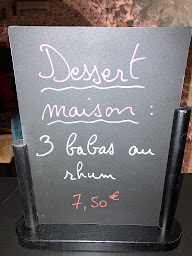 Dessert
maison :
3 babas au
rhum
7,50€